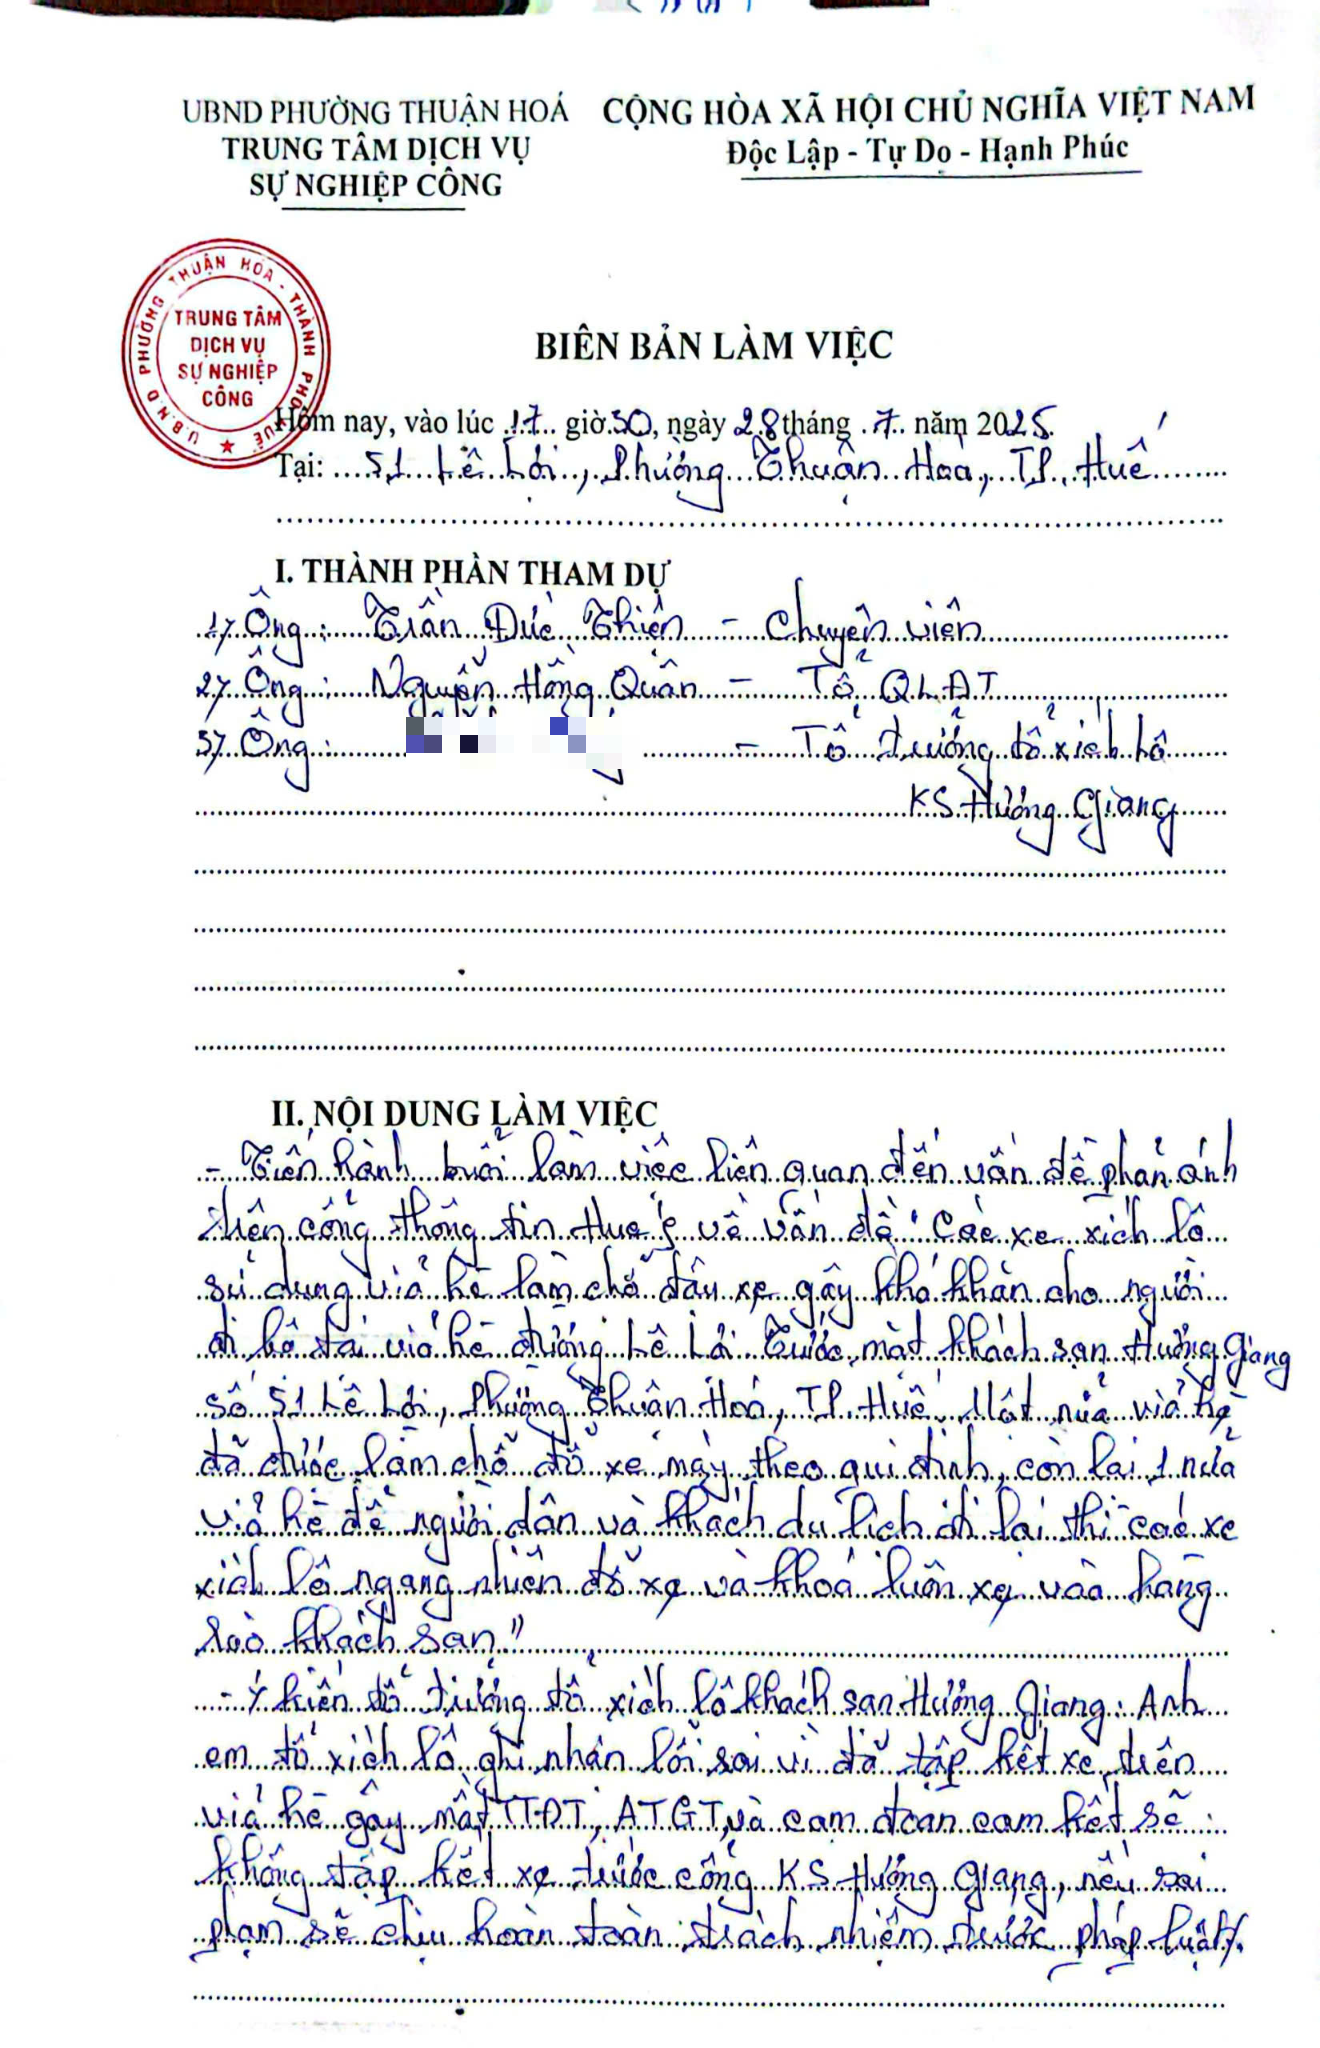 UBND PHƯỜNG THUẬN HOÁ
TRUNG TÂM DỊCH VỤ
SỰ NGHIỆP CÔNG
CỘNG HÒA XÃ HỘI CHỦ NGHĨA VIỆT NAM
Độc Lập - Tự Do - Hạnh Phúc
U.B.N.D PHƯỜNG THUẬN HÓA - THÀNH PHỐ HUẾ
TRUNG TÂM
DỊCH VỤ
SỰ NGHIỆP
CÔNG
BIÊN BẢN LÀM VIỆC
Hôm nay, vào lúc 17 giờ 30, ngày 28 tháng 7 năm 2025.
Tại: 51 Lê Lợi, Phường Thuận Hoá, TP. Huế
I. THÀNH PHẦN THAM DỰ
1/ Ông: Trần Đức Thiện - Chuyên viên
2/ Ông: Nguyễn Hồng Quân - Tổ QLĐT
3/ Ông: - Tổ trưởng tổ xích lô
KS Hương Giang
II. NỘI DUNG LÀM VIỆC
- Tiến hành buổi làm việc liên quan đến vấn đề phản ánh
trên cổng thông tin Hue S về vấn đề "Các xe xích lô
sử dụng vỉa hè làm chỗ đậu xe gây khó khăn cho người
đi bộ tại vỉa hè đường Lê Lợi trước mặt khách sạn Hương Giang
số 51 Lê Lợi, Phường Thuận Hoá, TP. Huế. Một nửa vỉa hè
đã được làm chỗ đỗ xe máy theo qui định, còn lại 1 nửa
vỉa hè để người dân và khách du lịch đi lại thì các xe
xích lô ngang nhiên đỗ xe và khoá luôn xe vào hàng
rào khách sạn"
- Ý kiến tổ trưởng tổ xích lô khách sạn Hương Giang: Anh
em tổ xích lô ghi nhận lỗi sai vì đã tập kết xe trên
vỉa hè gây mất TTĐT, ATGT, và cam đoan cam kết sẽ
không tập kết xe trước cổng KS Hương Giang, nếu sai
phạm sẽ chịu hoàn toàn trách nhiệm trước pháp luật/.